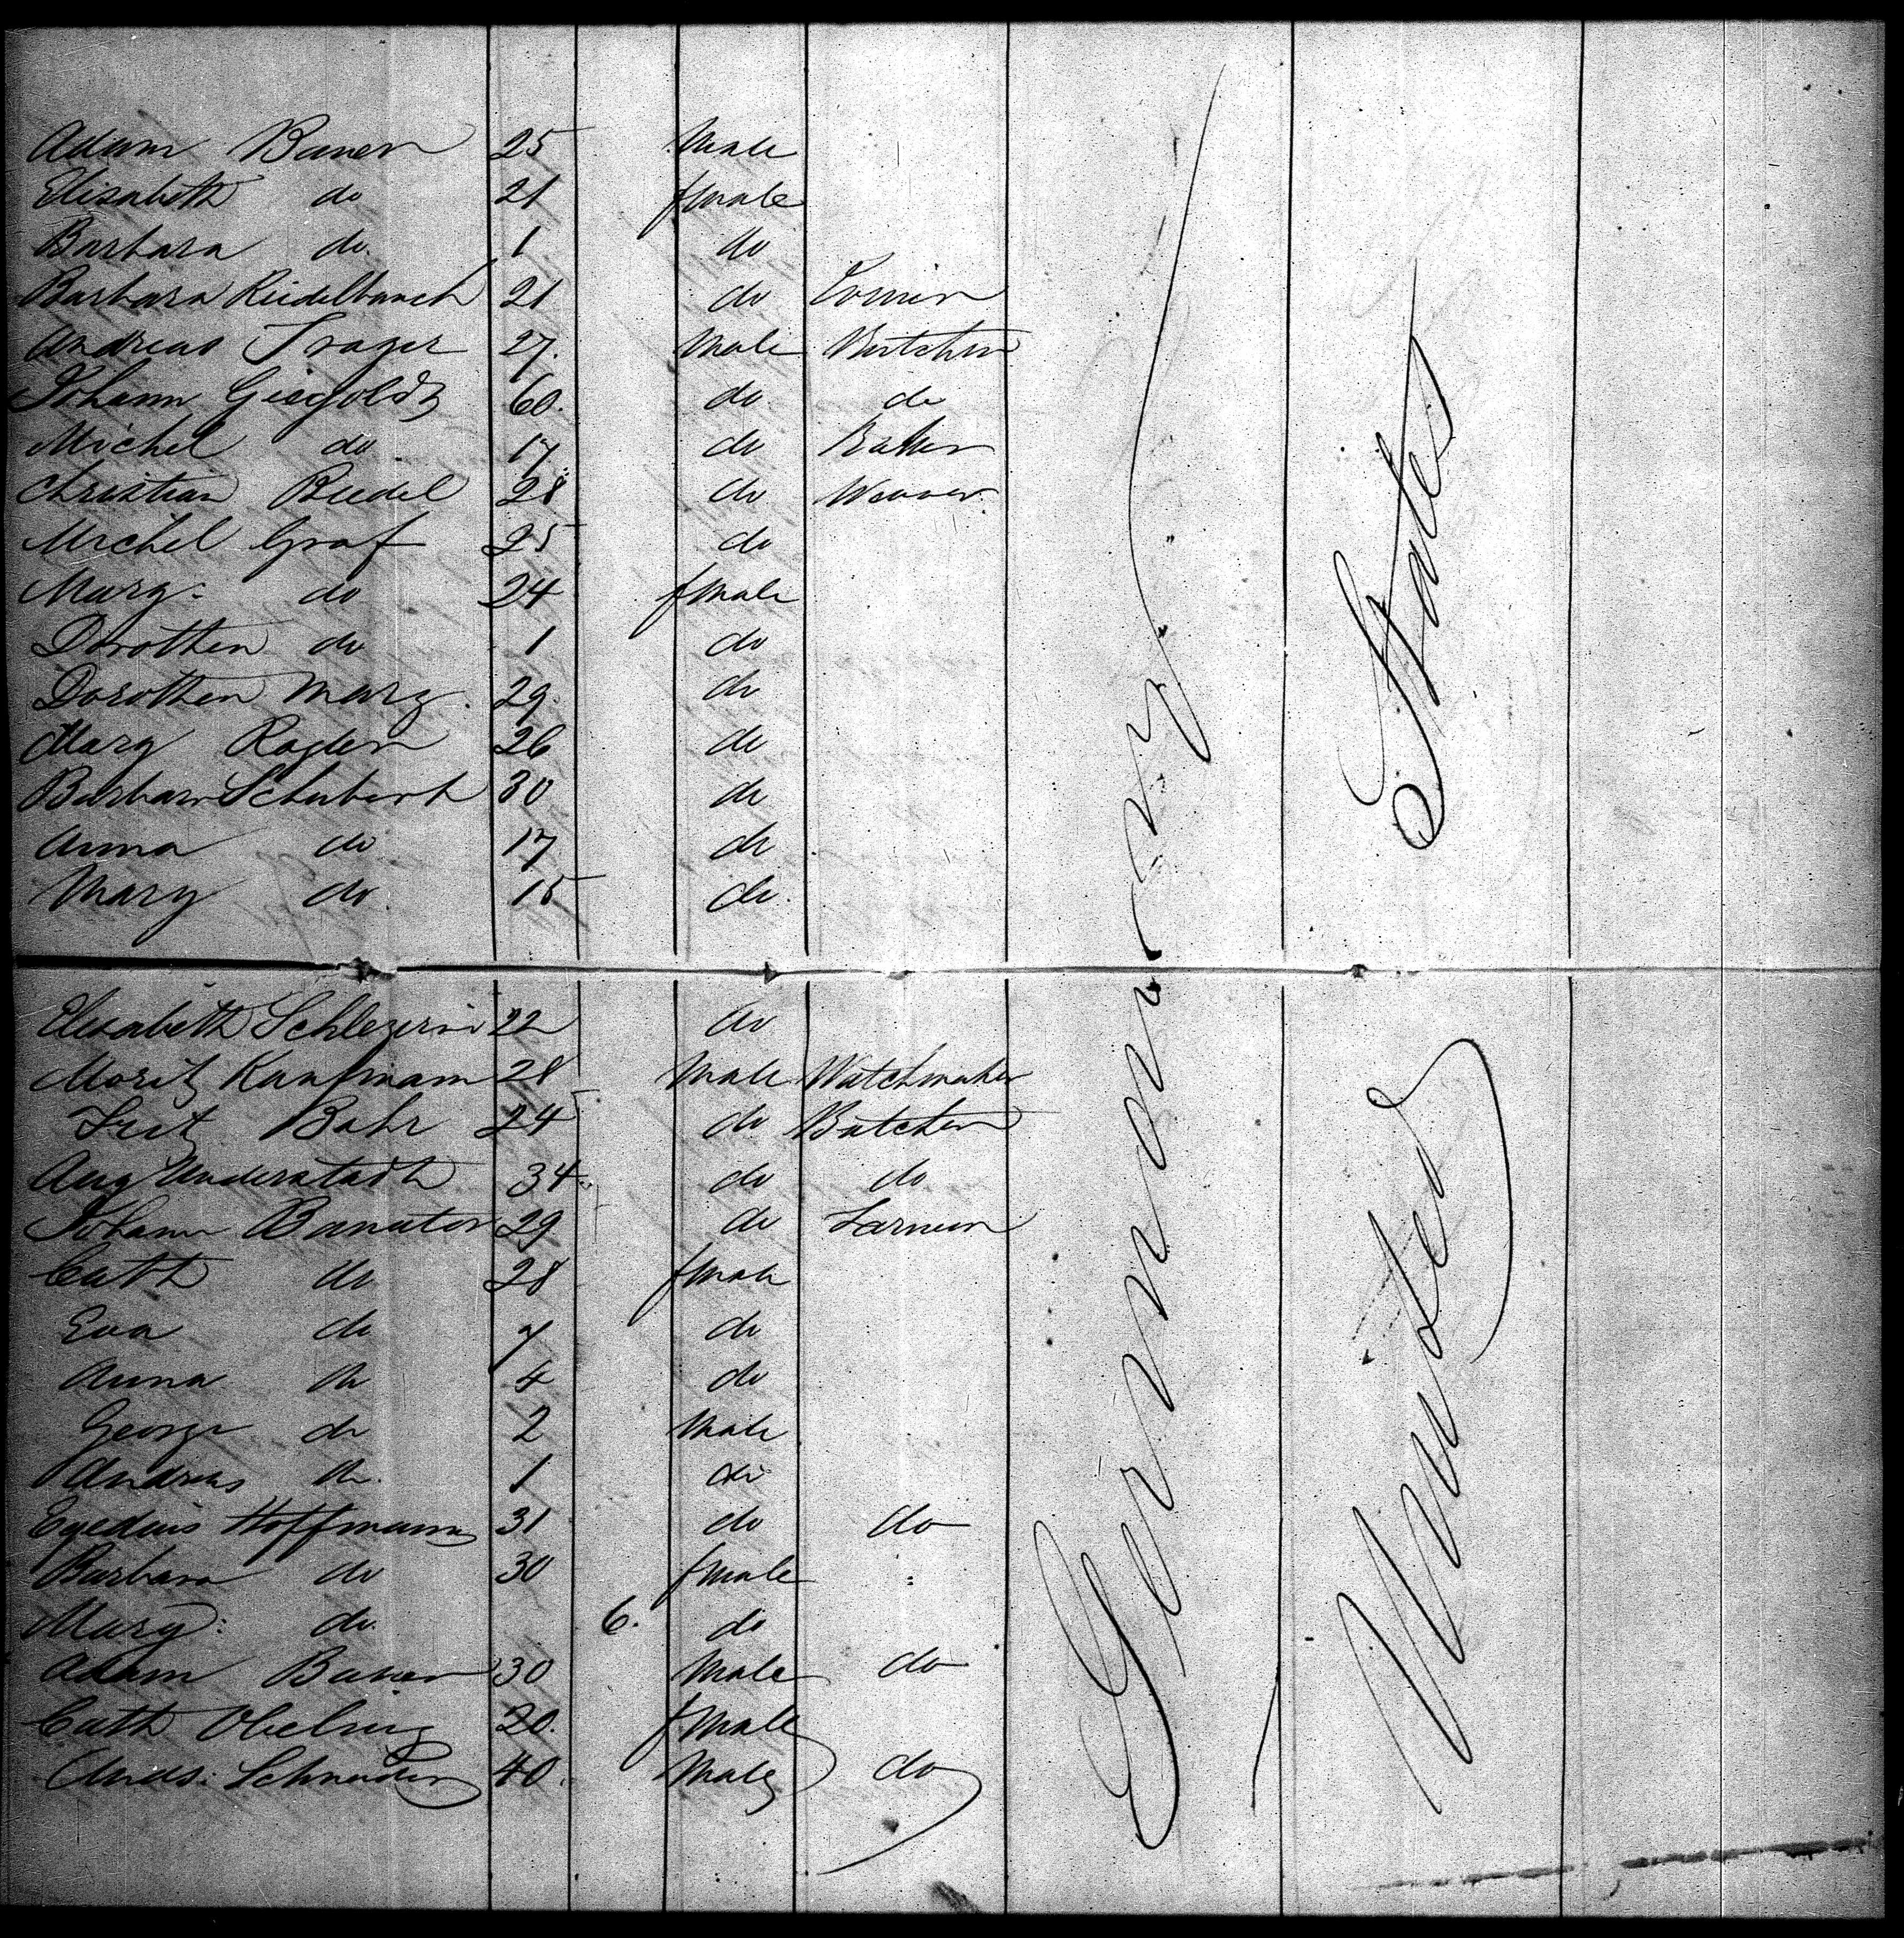 Adam Bauer 25 Male
Elisabeth do 21 fmale
Barbara do 1 do
Barbara Riedelbauch 21 do
Andreas Trager 27. Male Butcher
Johann Giegoldt 60. do do
Michel do 17 do Baker
Christian Riedel 28 do Weaver
Michel Graf 25 do
Marg: do 24 fmale
Dorothea do 1 do
Dorothea Marg. 29. do
Marg Rogler 26 do
Barbara Schubert 30 do
Anna do 17 do
Mary do 15 do.
Elisabeth 22 do
Moritz Kaufmann 28 Male Watchmaker
Fritz Bahr 24 do Butcher
Aug Understadt 34 do do
Johann 29 do Farmer
Cath do 28 fmale
Eva do 7 do
Anna do 4 do
George do 2 Male
Andreas do. 1 do
Egedius Hoffmann 31 do do
Barbara do 30 fmale
Marg: do. 6. do
Adam Bauer 30 Male do
Cath 20. fmale
Ands: Schneider 40. Male do
Germany
United States